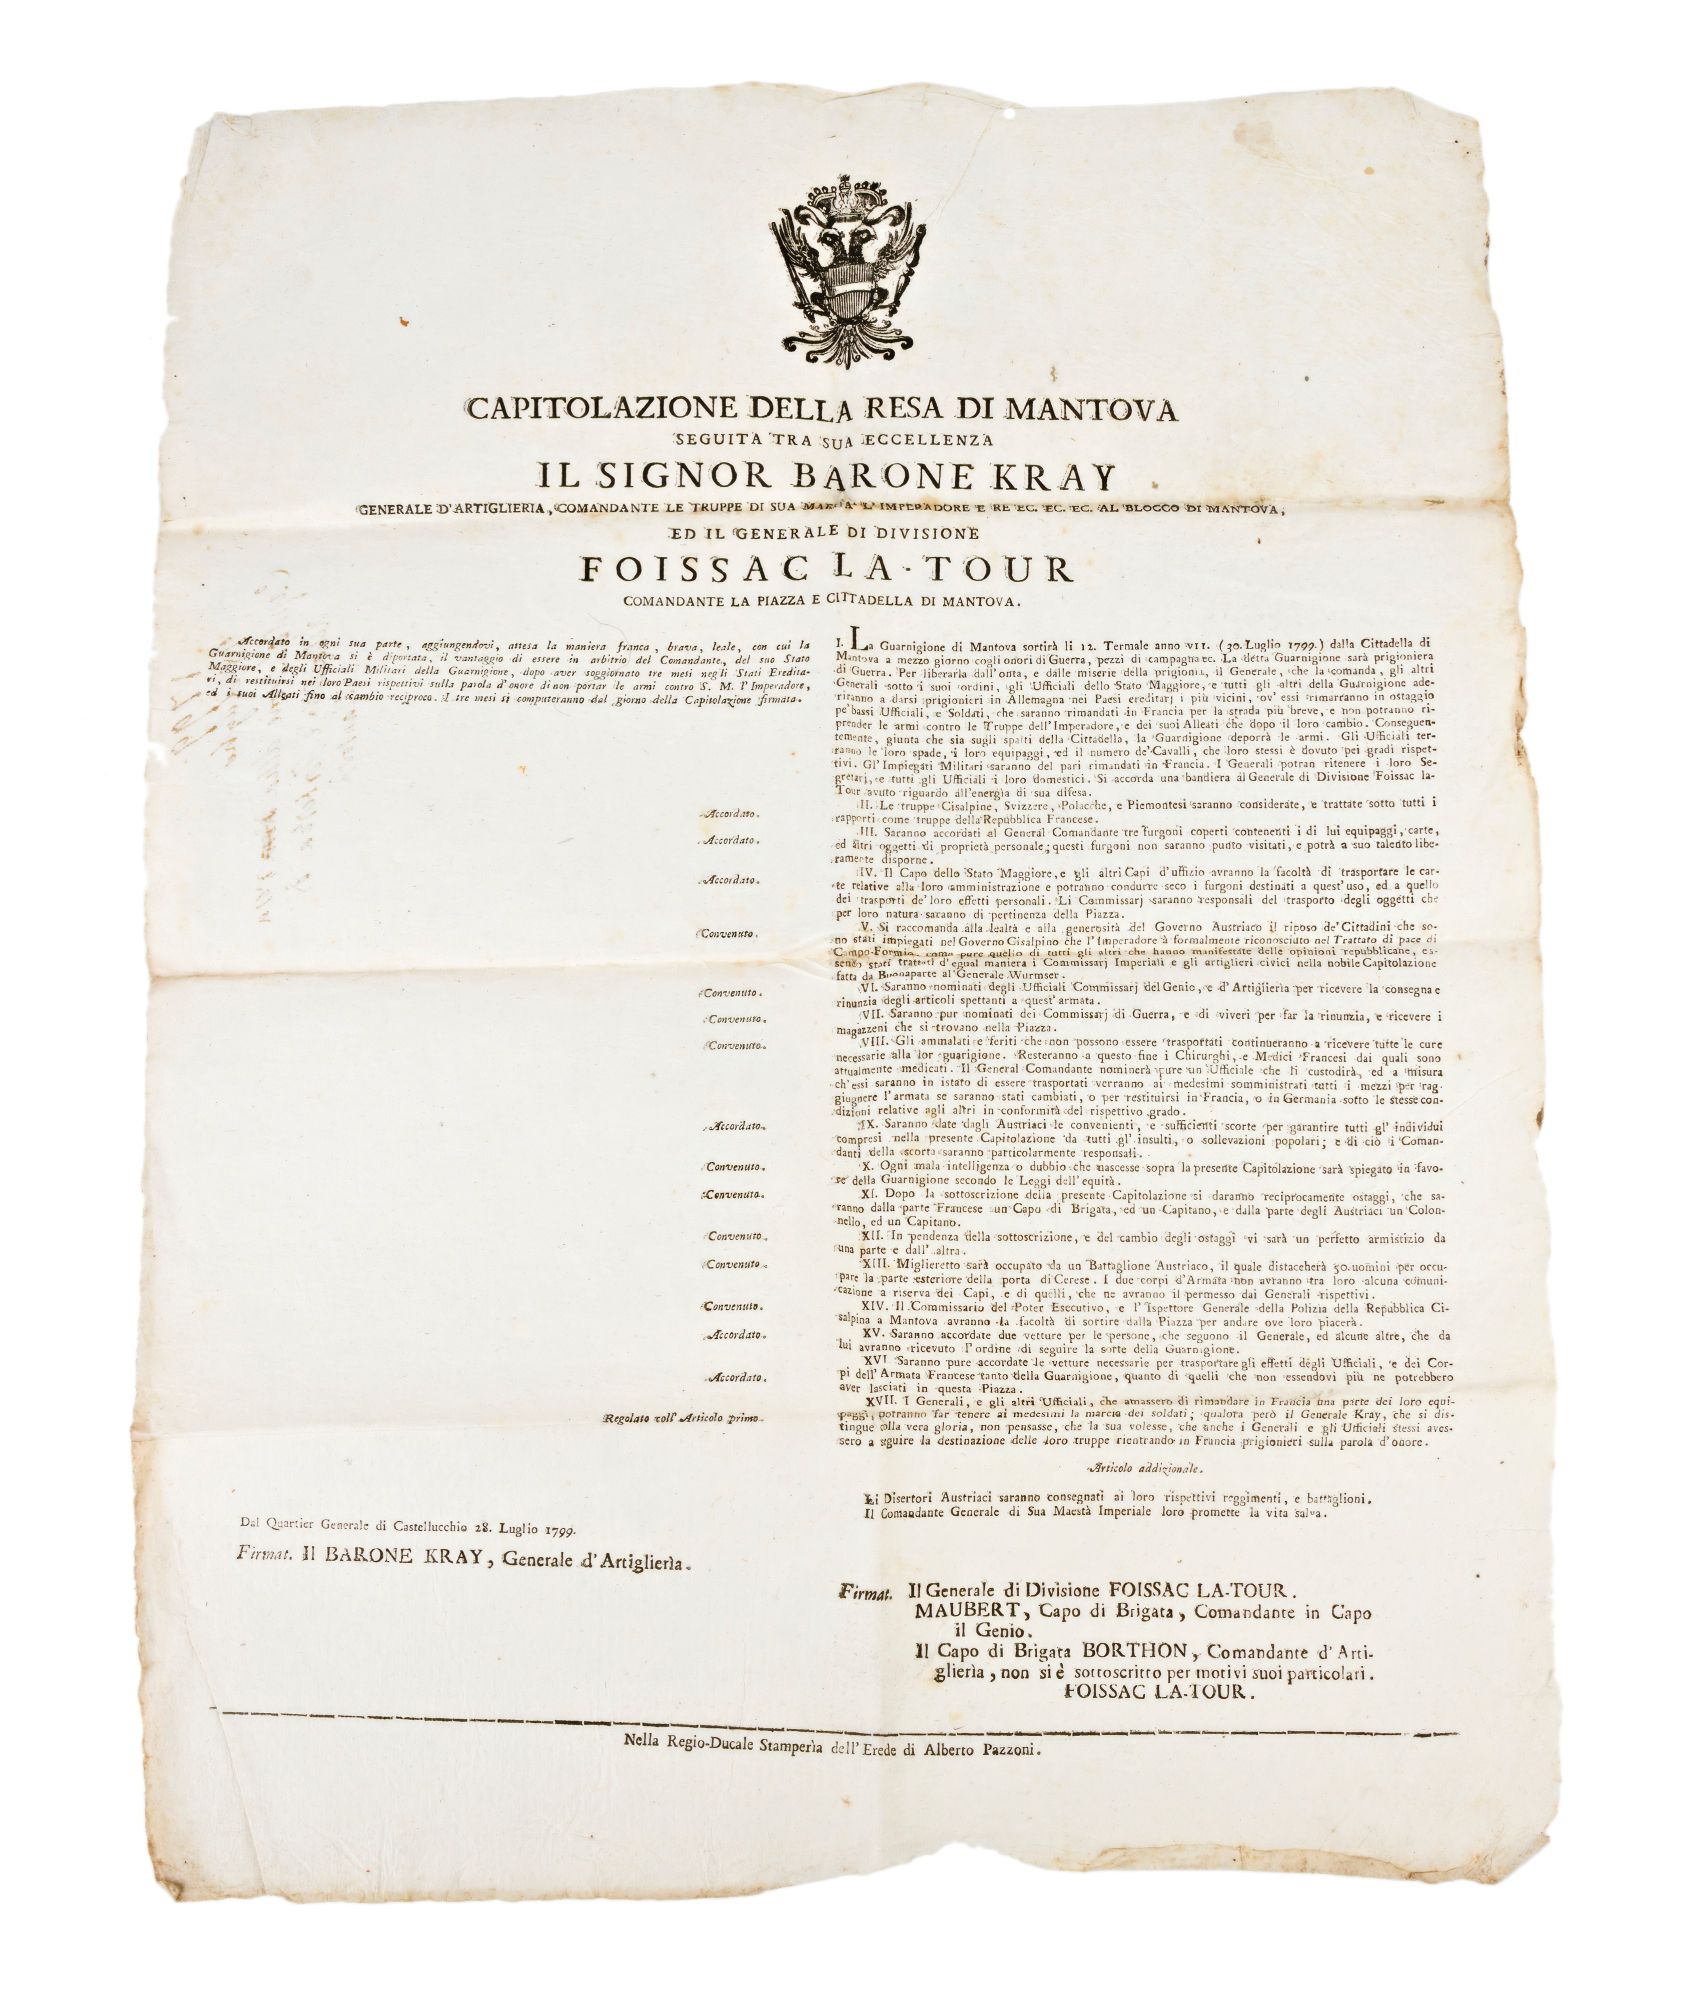 CAPITOLAZIONE DELLA RESA DI MANTOVA
SEGUITA TRA SUA ECCELLENZA
IL SIGNOR BARONE KRAY
GENERALE D'ARTIGLIERIA, COMANDANTE LE TRUPPE DI SUA MAESTA' L' IMPERADORE E RE EC. EC. EC. AL BLOCCO DI MANTOVA,
ED IL GENERALE DI DIVISIONE
FOISSAC LA-TOUR
COMANDANTE LA PIAZZA E CITTADELLA DI MANTOVA.
Accordato in ogni sua parte, aggiungendovi, attesa la maniera franca, brava, leale, con cui la
Guarnigione di Mantova si è diportata, il vantaggio di essere in arbitrio del Comandante, del suo Stato
Maggiore, e degli Ufficiali Militari della Guarnigione, dopo aver soggiornato tre mesi negli Stati Eredita-
rj, di restituirsi nei loro Paesi rispettivi sulla parola d'onore di non portar le armi contro S. M. l'Imperadore,
ed i suoi Allegati fino al cambio reciproco. I tre mesi si computeranno dal giorno della Capitolazione firmata.
Accordato.
Accordato.
Accordato.
Convenuto.
Convenuto.
Convenuto.
Convenuto.
Accordato.
Convenuto.
Convenuto.
Convenuto.
Convenuto.
Convenuto.
Accordato.
Accordato.
Regolato coll' Articolo primo.
Dal Quartier Generale di Castellucchio 28. Luglio 1799.
Firmat. Il BARONE KRAY, Generale d'Artiglierìa.
I. La Guarnigione di Mantova sortirà li 12. Termale anno VII. (30. Luglio 1799.) dalla Cittadella di
Mantova a mezzo giorno cogli onori di Guerra, pezzi di campagna ec. La detta Guarnigione sarà prigioniera
di Guerra. Per liberarla dall'onta, e dalle miserie della prigionia, il Generale, che la comanda, gli altri
Generali sotto i suoi ordini, gli Ufficiali dello Stato Maggiore, e tutti gli altri della Guarnigione ade-
riranno a darsi prigionieri in Allemagna nei Paesi ereditarj i più vicini, ov' essi rimarranno in ostaggio
pe' bassi Ufficiali, e Soldati, che saranno rimandati in Francia per la strada più breve, e non potranno ri-
prender le armi contro le Truppe dell'Imperadore, e dei suoi Alleati che dopo il loro cambio. Conseguen-
temente, giunta che sia sugli spalti della Cittadella, la Guarnigione deporrà le armi. Gli Ufficiali ter-
ranno le loro spade, i loro equipaggi, ed il numero de' Cavalli, che loro stessi è dovuto pei gradi rispet-
tivi. Gl' Impiegati Militari saranno del pari rimandati in Francia. I Generali potran ritenere i loro Se-
gretarj, e tutti gli Ufficiali i loro domestici. Si accorda una bandiera al Generale di Divisione Foissac la-
Tour avuto riguardo all'energìa di sua difesa.
II. Le truppe Cisalpine, Svizzere, Polacche, e Piemontesi saranno considerate, e trattate sotto tutti i
rapporti come truppe della Repubblica Francese.
III. Saranno accordati al General Comandante tre furgoni coperti contenenti i di lui equipaggi, carte,
ed altri oggetti di proprietà personale; questi furgoni non saranno punto visitati, e potrà a suo talento libe-
ramente disporne.
IV. Il Capo dello Stato Maggiore, e gli altri Capi d'uffizio avranno la facoltà di trasportare le car-
te relative alla loro amministrazione e potranno condurre seco i furgoni destinati a quest'uso, ed a quello
dei trasporti de' loro effetti personali. Li Commissarj saranno responsali del trasporto degli oggetti che
per loro natura saranno di pertinenza della Piazza.
V. Si raccomanda alla lealtà e alla generosità del Governo Austriaco il riposo de' Cittadini che so-
no stati impiegati nel Governo Cisalpino che l'Imperadore à formalmente riconosciuto nel Trattato di pace di
Campo-Formio, come pure quello di tutti gli altri che hanno manifestate delle opinioni repubblicane, es-
sendo stati trattati d'egual maniera i Commissarj Imperiali e gli artiglieri civici nella nobile Capitolazione
fatta da Buonaparte al Generale Wurmser.
VI. Saranno nominati degli Ufficiali Commissarj del Genio, e d' Artiglieria per ricevere la consegna e
rinunzia degli articoli spettanti a quest' armata.
VII. Saranno pur nominati dei Commissarj di Guerra, e di viveri per far la rinunzia, e ricevere i
magazzeni che si trovano nella Piazza.
VIII. Gli ammalati e feriti che non possono essere trasportati continueranno a ricevere tutte le cure
necessarie alla lor guarigione. Resteranno a questo fine i Chirurghi, e Medici Francesi dai quali sono
attualmente medicati. Il General Comandante nominerà pure un Ufficiale che li custodirà, ed a misura
ch'essi saranno in istato di essere trasportati verranno ai medesimi somministrati tutti i mezzi per rag-
giugnere l'armata se saranno stati cambiati, o per restituirsi in Francia, o in Germania sotto le stesse con-
dizioni relative agli altri in conformità del rispettivo grado.
IX. Saranno date dagli Austriaci le convenienti, e sufficienti scorte per garantire tutti gl' individui
compresi nella presente Capitolazione da tutti gl' insulti, o sollevazioni popolari; e di ciò i Coman-
danti della scorta saranno particolarmente responsali.
X. Ogni mala intelligenza o dubbio che nascesse sopra la presente Capitolazione sarà spiegato in favo-
re della Guarnigione secondo le Leggi dell'equità.
XI. Dopo la sottoscrizione della presente Capitolazione si daranno reciprocamente ostaggi, che sa-
ranno dalla parte Francese un Capo di Brigata, ed un Capitano, e dalla parte degli Austriaci un Colon-
nello, ed un Capitano.
XII. In pendenza della sottoscrizione, e del cambio degli ostaggi vi sarà un perfetto armistizio da
una parte e dall' altra.
XIII. Miglieretto sarà occupato da un Battaglione Austriaco, il quale distaccherà 50. uomini per occu-
pare la parte esteriore della porta di Cerese. I due corpi d'Armata non avranno tra loro alcuna comuni-
cazione a riserva dei Capi, e di quelli, che ne avranno il permesso dai Generali rispettivi.
XIV. Il Commissario del Poter Esecutivo, e l' Ispettore Generale della Polizia della Repubblica Ci-
salpina a Mantova avranno la facoltà di sortire dalla Piazza per andare ove loro piacerà.
XV. Saranno accordate due vetture per le persone, che seguono il Generale, ed alcune altre, che da
lui avranno ricevuto l'ordine di seguire la sorte della Guarnigione.
XVI. Saranno pure accordate le vetture necessarie per trasportare gli effetti degli Ufficiali, e dei Cor-
pi dell' Armata Francese tanto della Guarnigione, quanto di quelli che non essendovi più ne potrebbero
aver lasciati in questa Piazza.
XVII. I Generali, e gli altri Ufficiali, che amassero di rimandare in Francia una parte dei loro equi-
paggi, potranno far tenere ai medesimi la marcia dei soldati; qualora però il Generale Kray, che si dis-
tingue colla vera gloria, non pensasse, che la sua volesse, che anche i Generali e gli Ufficiali stessi aves-
sero a seguire la destinazione delle loro truppe rientrando in Francia prigionieri sulla parola d'onore.
Articolo addizionale.
Li Disertori Austriaci saranno consegnati ai loro rispettivi reggimenti, e battaglioni.
Il Comandante Generale di Sua Maestà Imperiale loro promette la vita salva.
Firmat. Il Generale di Divisione FOISSAC LA-TOUR.
MAUBERT, Capo di Brigata, Comandante in Capo
il Genio.
Il Capo di Brigata BORTHON, Comandante d'Arti-
glierìa, non si è sottoscritto per motivi suoi particolari.
FOISSAC LA-TOUR.
Nella Regio-Ducale Stamperìa dell'Erede di Alberto Pazzoni.